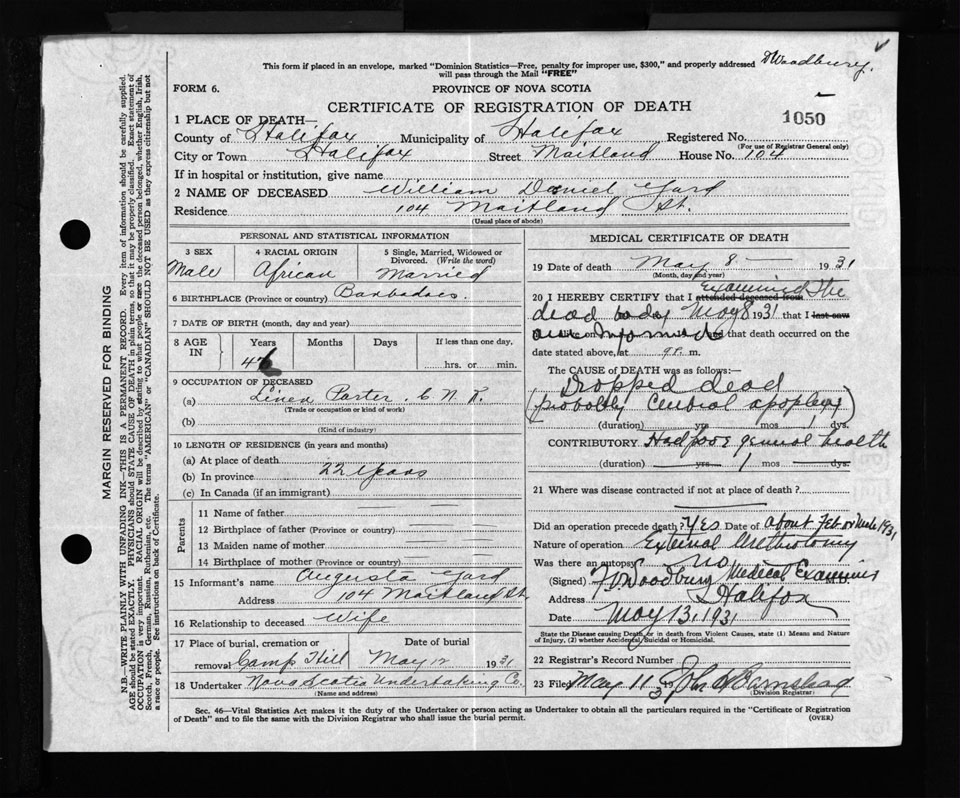 This form if placed in an envelope, marked "Dominion Statistics—Free, penalty for improper use, $300," and properly addressed
will pass through the Mail "FREE"
D Woodbury.
FORM 6.
PROVINCE OF NOVA SCOTIA
CERTIFICATE OF REGISTRATION OF DEATH
1050
1 PLACE OF DEATH—
County of Halifax Municipality of Halifax Registered No.
(For use of Registrar General only)
City or Town Halifax Street Maitland House No. 104
If in hospital or institution, give name
2 NAME OF DECEASED William Daniel Yard
Residence 104 Maitland St.
(Usual place of abode)
PERSONAL AND STATISTICAL INFORMATION
3 SEX
Male
4 RACIAL ORIGIN
African
5 Single, Married, Widowed or
Divorced. (Write the word)
Married
6 BIRTHPLACE (Province or country) Barbadoes.
7 DATE OF BIRTH (month, day and year)
8 AGE
IN
Years Months Days If less than one day,
46 hrs. or min.
9 OCCUPATION OF DECEASED
(a) Porter. C.N.R.
(Trade or occupation or kind of work)
(b)
(Kind of industry)
10 LENGTH OF RESIDENCE (in years and months)
(a) At place of death
(b) In province 22 years
(c) In Canada (if an immigrant)
Parents
11 Name of father
12 Birthplace of father (Province or country)
13 Maiden name of mother
14 Birthplace of mother (Province or country)
15 Informant's name Augusta Yard
Address 104 Maitland St
16 Relationship to deceased Wife
17 Place of burial, cremation or Date of burial
removal Camp Hill May 12 1931
18 Undertaker Nova Scotia Undertaking Co.
(Name and address)
MEDICAL CERTIFICATE OF DEATH
19 Date of death May 8 — 1931
(Month, day and year)
20 I HEREBY CERTIFY that I attended deceased from examined the
dead body May 8 1931 that I last saw
alive on am informed that death occurred on
date stated above, at 9 P. m.
The CAUSE OF DEATH was as follows:—
Dropped dead
(probably Cerebral apoplexy)
(duration) yrs mos dys.
CONTRIBUTORY Had poor general health
(duration) yrs 1 mos dys.
21 Where was disease contracted if not at place of death?
Did an operation precede death? Yes Date of about Feb or March 1931
Nature of operation External Urethrotomy
Was there an autopsy no
(Signed) Woodbury Medical Examiner
Address Halifax
Date May 13, 1931
State the Disease causing Death, or in death from Violent Causes, state (1) Means and Nature
of Injury, (2) whether Accidental, Suicidal or Homicidal.
22 Registrar's Record Number
23 Filed May 11 31 John Barnstead
(Division Registrar)
Sec. 46—Vital Statistics Act makes it the duty of the Undertaker or person acting as Undertaker to obtain all the particulars required in the "Certificate of Registration
of Death" and to file the same with the Division Registrar who shall issue the burial permit.
(OVER)
MARGIN RESERVED FOR BINDING
N.B.—WRITE PLAINLY WITH UNFADING INK—THIS IS A PERMANENT RECORD. Every item of information should be carefully supplied.
AGE should be stated EXACTLY. PHYSICIANS should STATE CAUSE OF DEATH in plain terms, so that it may be properly classified. Exact statement of
OCCUPATION is very important. RACIAL ORIGIN will be described by stating to what people or race the deceased person belonged, whether English, Irish,
Scotch, French, German, Russian, Ruthenian, etc. The terms "AMERICAN" or "CANADIAN" SHOULD NOT BE USED as they express citizenship but not
a race or people. See instructions on back of Certificate.